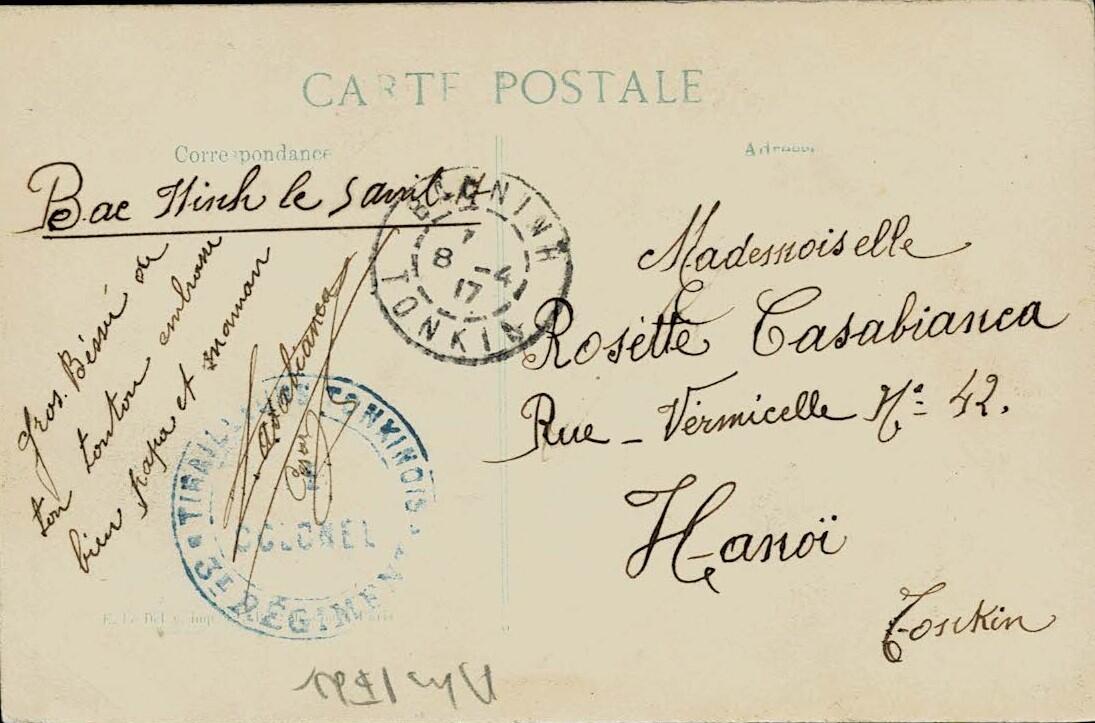 CARTE POSTALE
Correspondance
Adresse
Bac Ninh le
gros. Béssé de
ton tonton embrasse
bien papa et maman
Casabianca
BAC-NINH
7
8 -4
17
TONKIN
3E RÉGIMENT
TIRAILLEURS TONKINOIS
COLONEL
Mademoiselle
Rosétte Casabianca
Rue - Vérmicelle No 42.
Hanoï
Tonkin